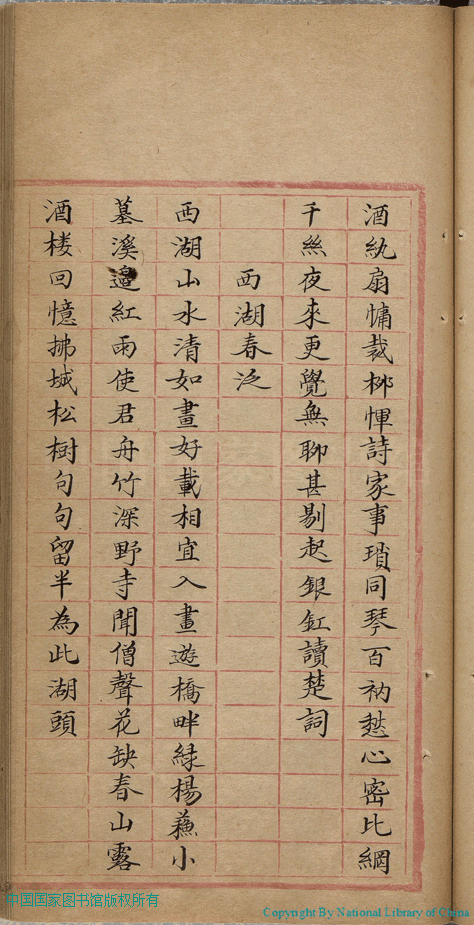 酒紈扇慵裁柳惲詩家事瑣同琴百衲愁心密比網
千絲夜來更覺無聊甚剔起銀釭讀楚詞
西湖春泛
西湖山水清如畫好載相宜入畫遊橋畔綠楊蘇小
墓溪邊紅雨使君舟竹深野寺聞僧聲花缺春山露
酒樓回憶拂城松樹句句留半為此湖頭
中国国家图书馆版权所有
Copyright By National Library of China